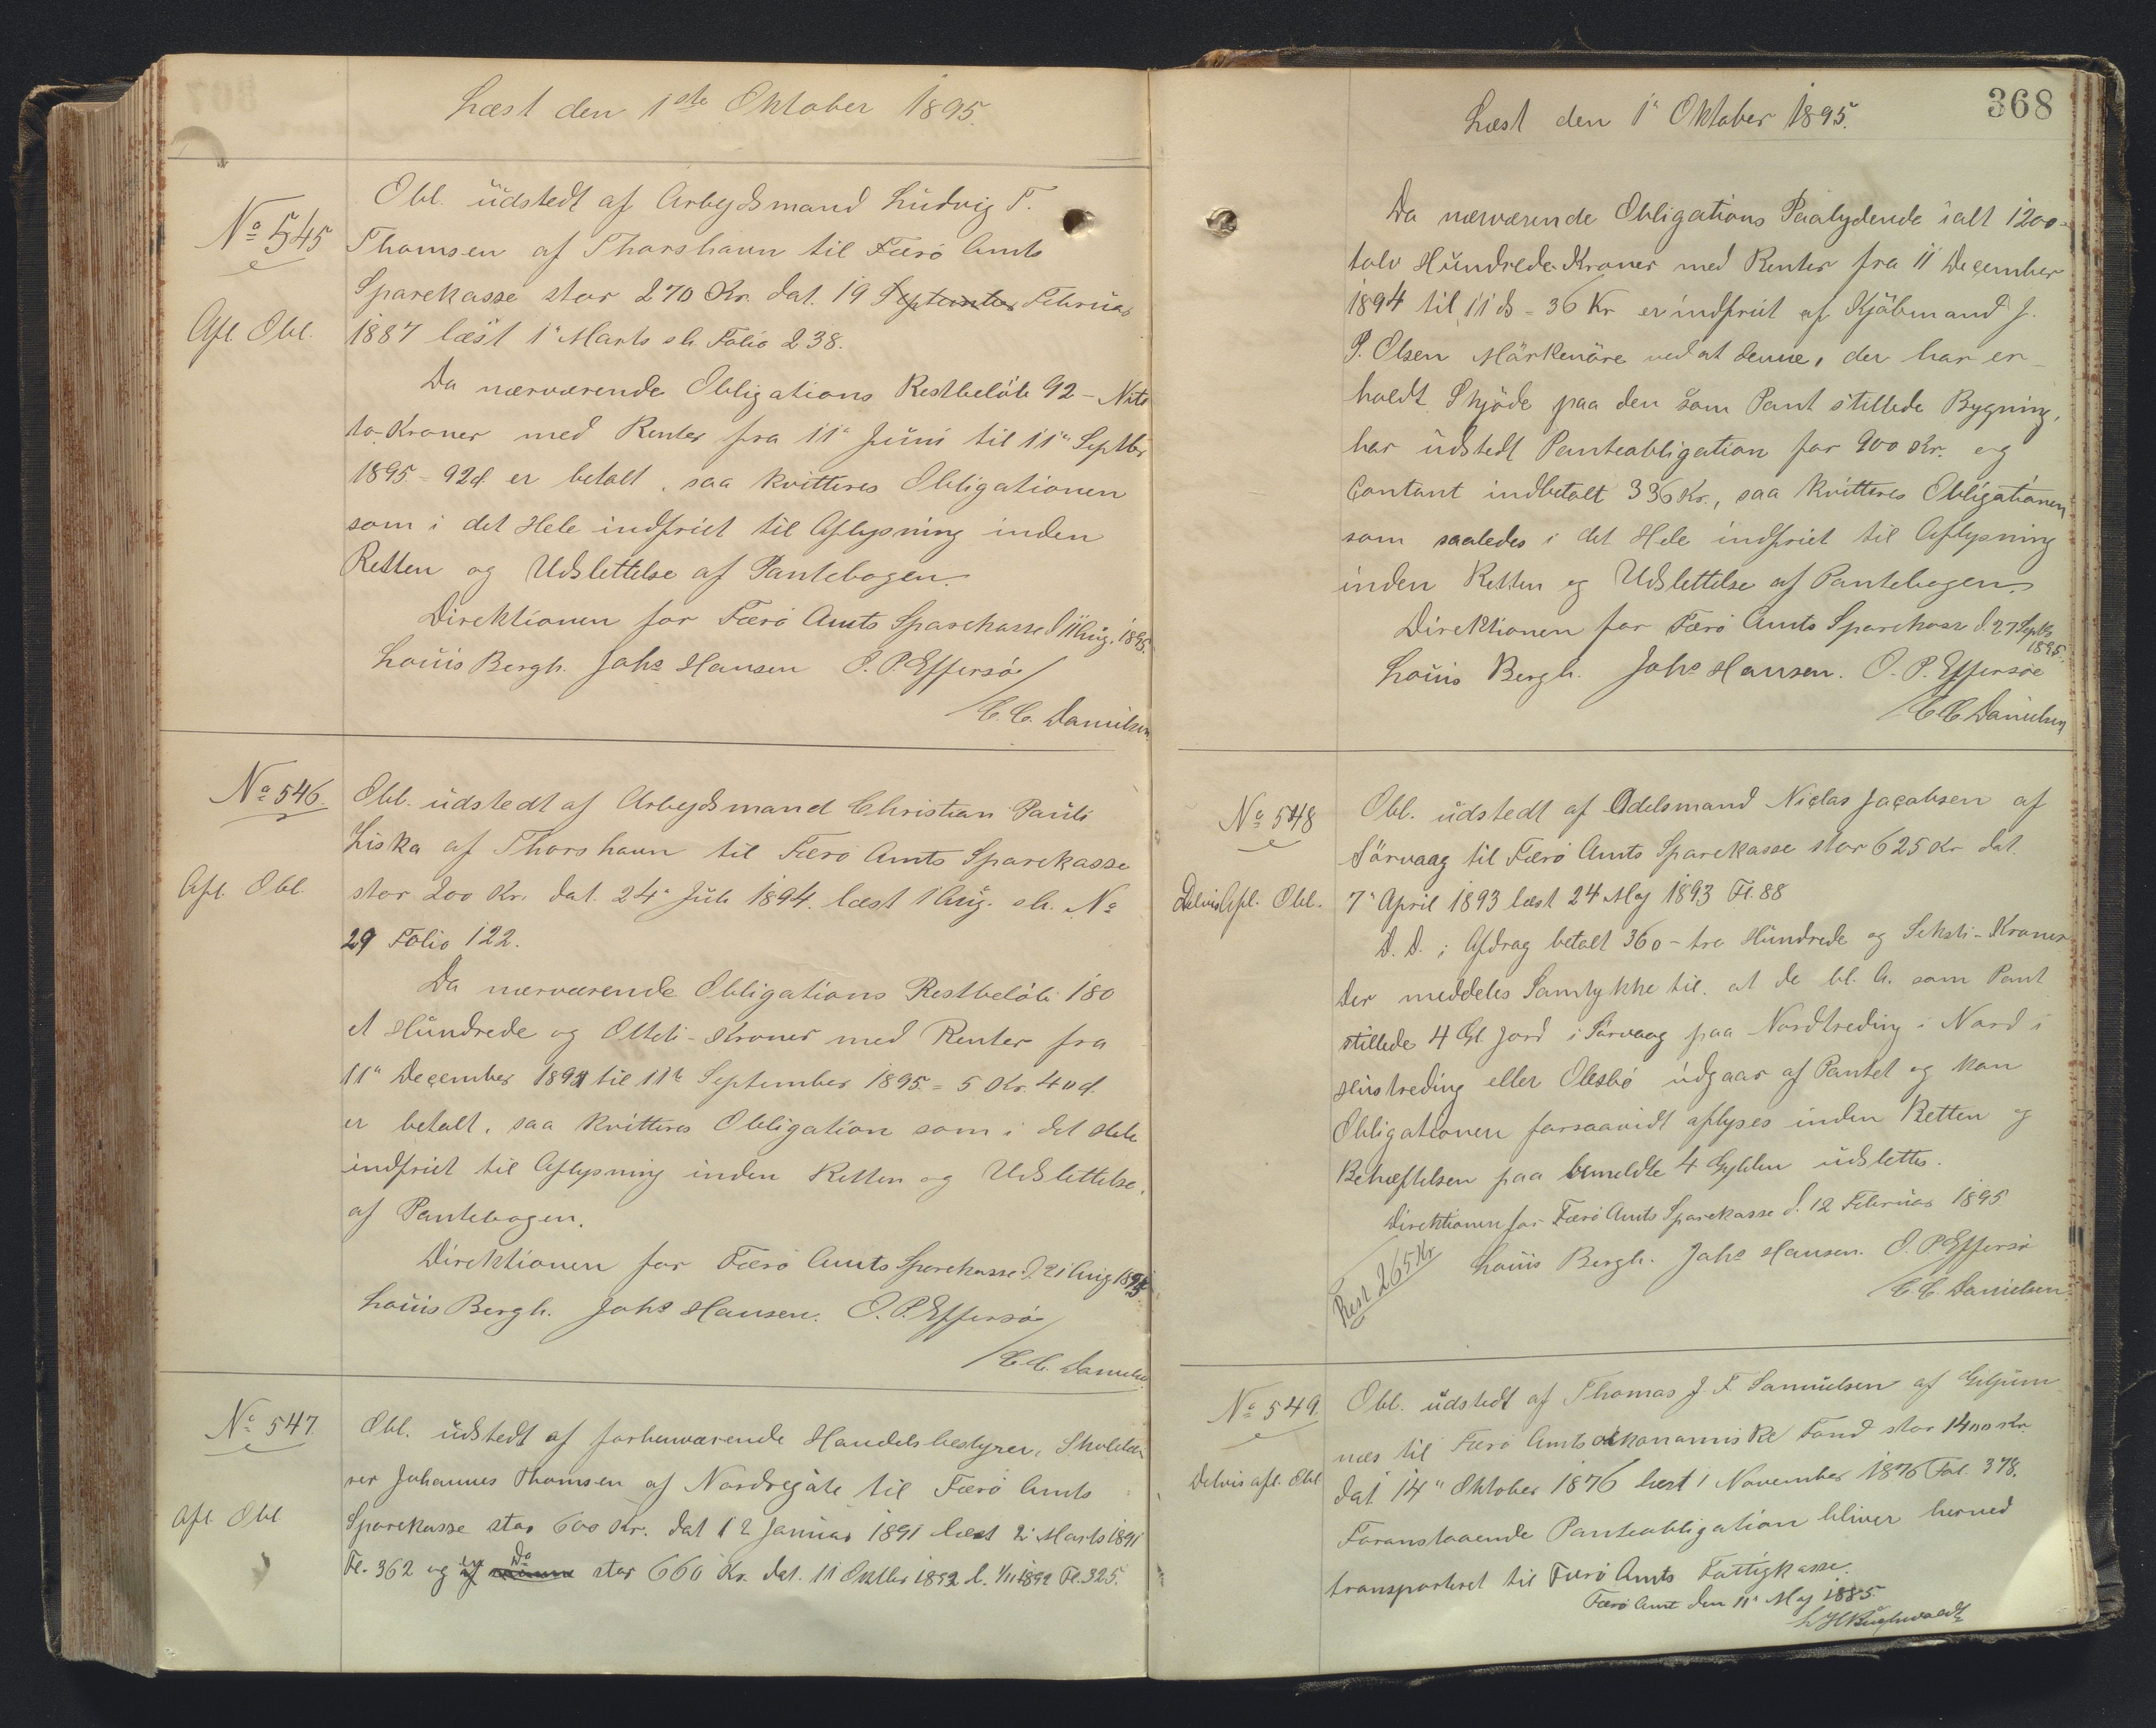 Læst den 1ste Oktober 1895.
No 545
Afl. Obl.
Obl. üdstedt af Arbejdsmand Lüdvig T.
Thomsen af Thorshavn til Færö Amts
Sparekasse stor 270 Kr. dat. 19 September Februar
1887 læst 1" Marts sh. Folio 238.
Da nærværende Obligations Restbelöb 92 - Niti
to Kroner med Renter fra 11" Juni til 11" Septbr
1895 = 92d er betalt, saa kvitteres Obligationen
som i det Hele indfriet til Aflysning inden
Retten og Udslettelse af Pantebogen.
Direktionen for Færö Amts Sparekasse d 11 Aug. 1895.
Louis Bergh. Johs Hansen O. P. Effersöe
/C. C. Danielsen
No 546.
Afl. Obl.
Obl. üdstedt af Arbejdsmand Christian Pauli
Liska af Thorshavn til Færö Amts Sparekasse
stor 200 Kr. dat. 24" Juli 1894. læst 1 Aug. sh. No
29 Folio 122.
Da nærværende Obligations Restbelöb 180
et Hundrede og Otteti - Kroner med Renter fra
11" December 1894 til 11te September 1895 = 5 Kr. 40d.
er betalt, saa kvitteres Obligation som i det Hele
indfriet til Aflysning inden Retten og Udslettelse
af Pantebogen.
Direktionen for Færö Amts Sparekasse d. 21 Aug 1895
Louis Bergh. Johs Hansen. O. P. Effersöe
/C. C. Danielsen
No 547.
Afl. Obl
Obl. üdstedt af forhenværende Handelsbestyrer, Skolelæ
rer Johannes Thomsen af Nordregöte til Færö Amts
Sparekasse stor 600 Kr. dat 12 Januar 1891 læst 2 Marts 1891
Fl. 362 og en Do stor 660 Kr. dat. 11 Oktbr 1892 l. 1/11 1892 Fl. 325.
368
Læst den 1" Oktober 1895.
Da nærværende Obligations Paalydende ialt 1200 -
tolv Hundrede Kroner med Renter fra 11 December
1894 til 11 ds = 36 Kr er indfriet af Kjöbmand J.
P. Olsen Mörkenöre ved at denne, der har er-
holdt Skjöde paa den som Pant stillede Bygning,
har üdstedt Panteobligation for 900 Kr. og
Contant indbetalt 336 Kr., saa kvitteres Obligationen
som saaledes i det Hele indfriet til Aflysning
inden Retten og Udslettelse af Pantebogen
Direktionen for Færö Amts Sparekasse d. 27 Septbr
1895.
Louis Bergh. Johs Hansen. O. P. Effersöe
/C C Danielsen
No 548
Delvis Afl. Obl.
Obl. üdstedt af Odelsmand Niclas Jacobsen af
Sörvaag til Færö Amts Sparekasse stor 625 Kr dat.
7" April 1893 læst 24 Maj 1893 Fl. 88
D. D. i Afdrag betalt 360 - tre Hundrede og Seksti - Kroner
Der meddeles Samtykke til, at de bl. A. som Pant
stillede 4 Gl. Jord i Sörvaag paa Nordtreding i Nord i
eller üdgaar af Pantet og kan
Obligationen forsaavidt aflyses inden Retten og
Behæftelsen paa bemeldte 4 Gylden üdslettes.
Direktionen for Færö Amts Sparekasse d. 12 Februar 1895
Rest 265 Kr
Louis Bergh. Johs Hansen. O. P. Effersö
/C. C. Danielsen.
No 549.
Delvis afl. Obl
Obl. üdstedt af Thomas J. F. Samuelsen af Grljum
næs til Færö Amts oekonomiske Fond stor 1400 Kr.
dat 14" Oktober 1876 læst 1 November 1876 Fol. 378.
Foranstaaende Panteobligation bliver herved
transporteret til Færö Amts Fattigkasse.
Færö Amt den 11" Maj 1885.